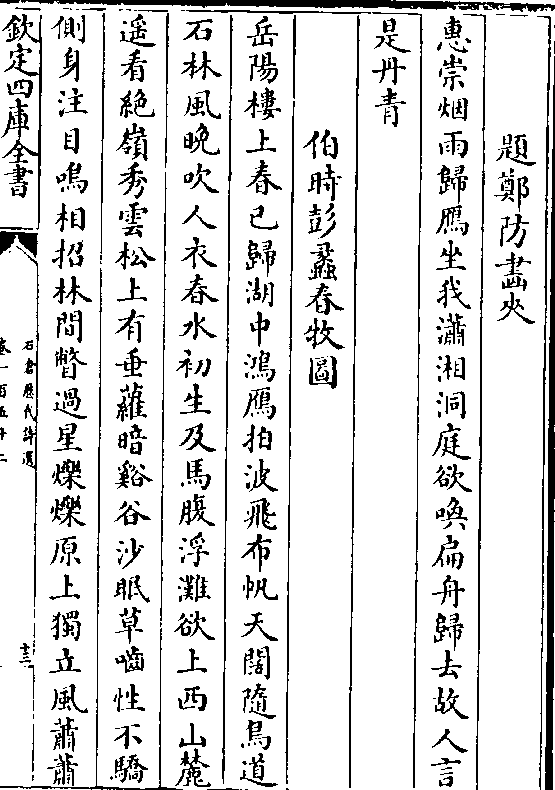 題鄭防畫夾
惠崇烟雨歸鴈坐我瀟湘洞庭欲喚扁舟歸去故人言
是丹青
伯時彭蠡春牧圖
岳陽樓上春已歸湖中鴻鴈拍波飛布帆天闊隨鳥道
石林風晚吹人衣春水初生及馬腹浮灘欲上西山麓
遥看絶嶺秀雲松上有垂蘿暗谿谷沙眠草嚙性不驕
側身注目鳴相招林間瞥過星爍爍原上獨立風蕭蕭
欽定四庫全書
石倉歷代詩選
卷一百五十二
十三